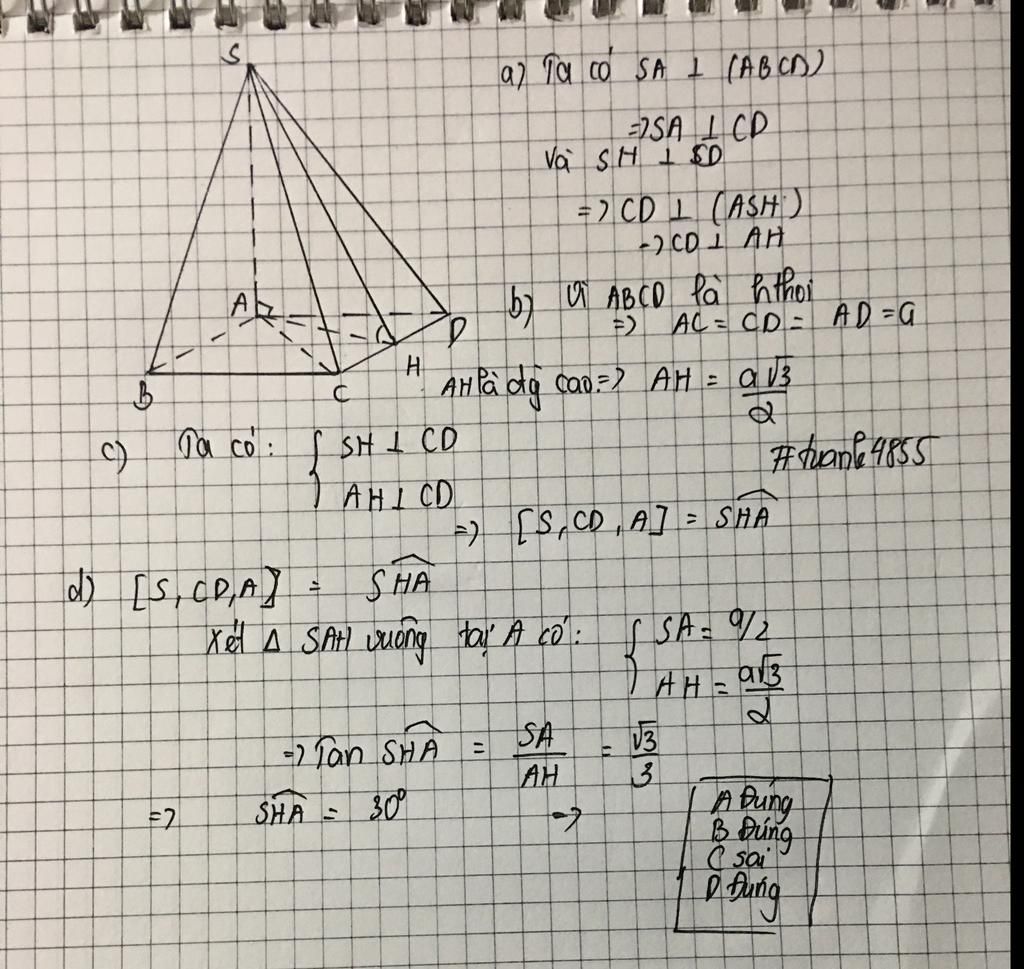 S
A
B
C
D
H
a) Ta có SA ⊥ (ABCD)
=> SA ⊥ CD
Và SH ⊥ CD
=> CD ⊥ (ASH)
-> CD ⊥ AH
b) Vì ABCD là hthoi
=> AC = CD = AD = a
AH là đg cao => AH = a√3/2
#tuanle4855
c) Ta có: { SH ⊥ CD
AH ⊥ CD
=> [S,CD,A] = SHA
d) [S,CD,A] = SHA
Xét Δ SAH vuông tại A có: { SA = a/2
AH = a√3/2
=> Tan SHA = SA/AH = √3/3
=> SHA = 30° ->
A Đúng
B Đúng
C sai
D Đung